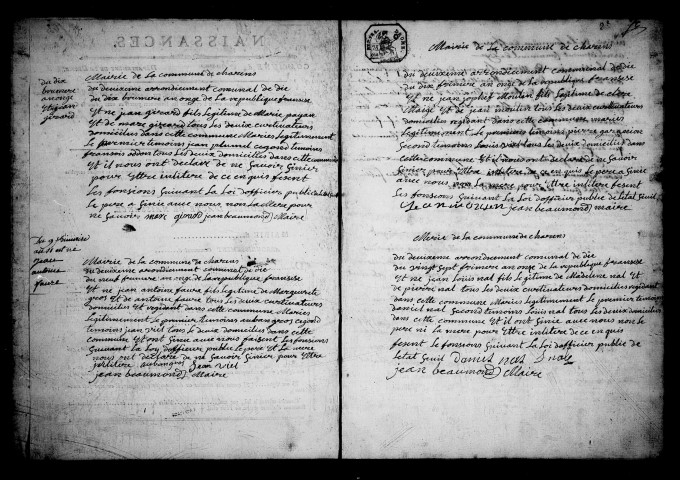 NAISSANCES.
du dix
brumere
an onze
girard
Mairie de La commune de charens
du deuxeme arrondisement comunal de die
du dix brumere an onze de La republique franse
Et ne jean girard fils legitime de Marie payan
Et de marc girard tous Les deux curtivateurs
domicilies dans cette commune Maries Legitimement
Le premier temoins jean plumel cegond temoins
fransois odon tous Les deux domicilies dans cette commune
Et il nous ont declare de ne Savoir Sinier
pour yttre intitere de ce en quis fesent
Les fonsions Suivant La Loi dofficier public de
Le pere a Sinie avec nous non La mere pour
ne Savoir marc girard jean beaumond Maire
Le 9 frimere
an 11 est ne
jean
antoine
faure
Mairie de La commune de charens
du deuxeme arrondisment comunal de die
du neuf frimere an onze de La republique franse
Et ne jean antoine faure fils Legitime de Margueritte
gros Et de antoine faure tous Les deux curtivateurs
domicilies Et residant dans cette commune Maries
Legitimement Le premier temoins auban gros cegond
temoins jean viel tous Les deux domicilies dans cette
commune Et ont Sinie avec nous faisent Les fonsions
Suivant La Loi dofficier public Le pere Et La mere
nous ont declare de ne Savoir Sinier pour yttre
intitere auban gros Jean viel
jean beaumond Maire
Mairie de La commune de charens
du deuxeme arrondisement communal de die
du dix frimere an onze de La republique franse
Et ne jean jophet Moutin fils Legitime de
Et de jean moutin tous Les deux curtivateurs
domicilies residant dans cette commune maries
Legitimement Le premiere temoins pierre garaison
Second temoins Louis viel tous Les deux domicilies dans
cette commune Et il nous ont declare de ne Savoir
Sinier pour yttre intitere de ce en quis Le pere a Sinie
avec nous non La mere pour yttre intitere fesent
Les fonsions Suivant La Loi dofficier public de Letat Sivil
jean beaumond maire
Merie de La commune de charens
du deuxeme arrondisement comunal de die
du vingt Sept frimere an onze de La republique franse
Et ne jean Louis nal fils Legitime de Madelene nal Et
de pierre nal tous Les deux curtivateurs domicilies residant
dans cette commune Maries Legitimement Le premier temoins
daniel nal Second temoins Louis nal tous Les deux domicilies
dans cette commune Et il ont Sinie avec nous non Le
pere ni La mere pour yttre intitere de ce en quis
fesent Le fonsions Suivant La Loi dofficier public de
Letat Sivil
jean beaumond Maire